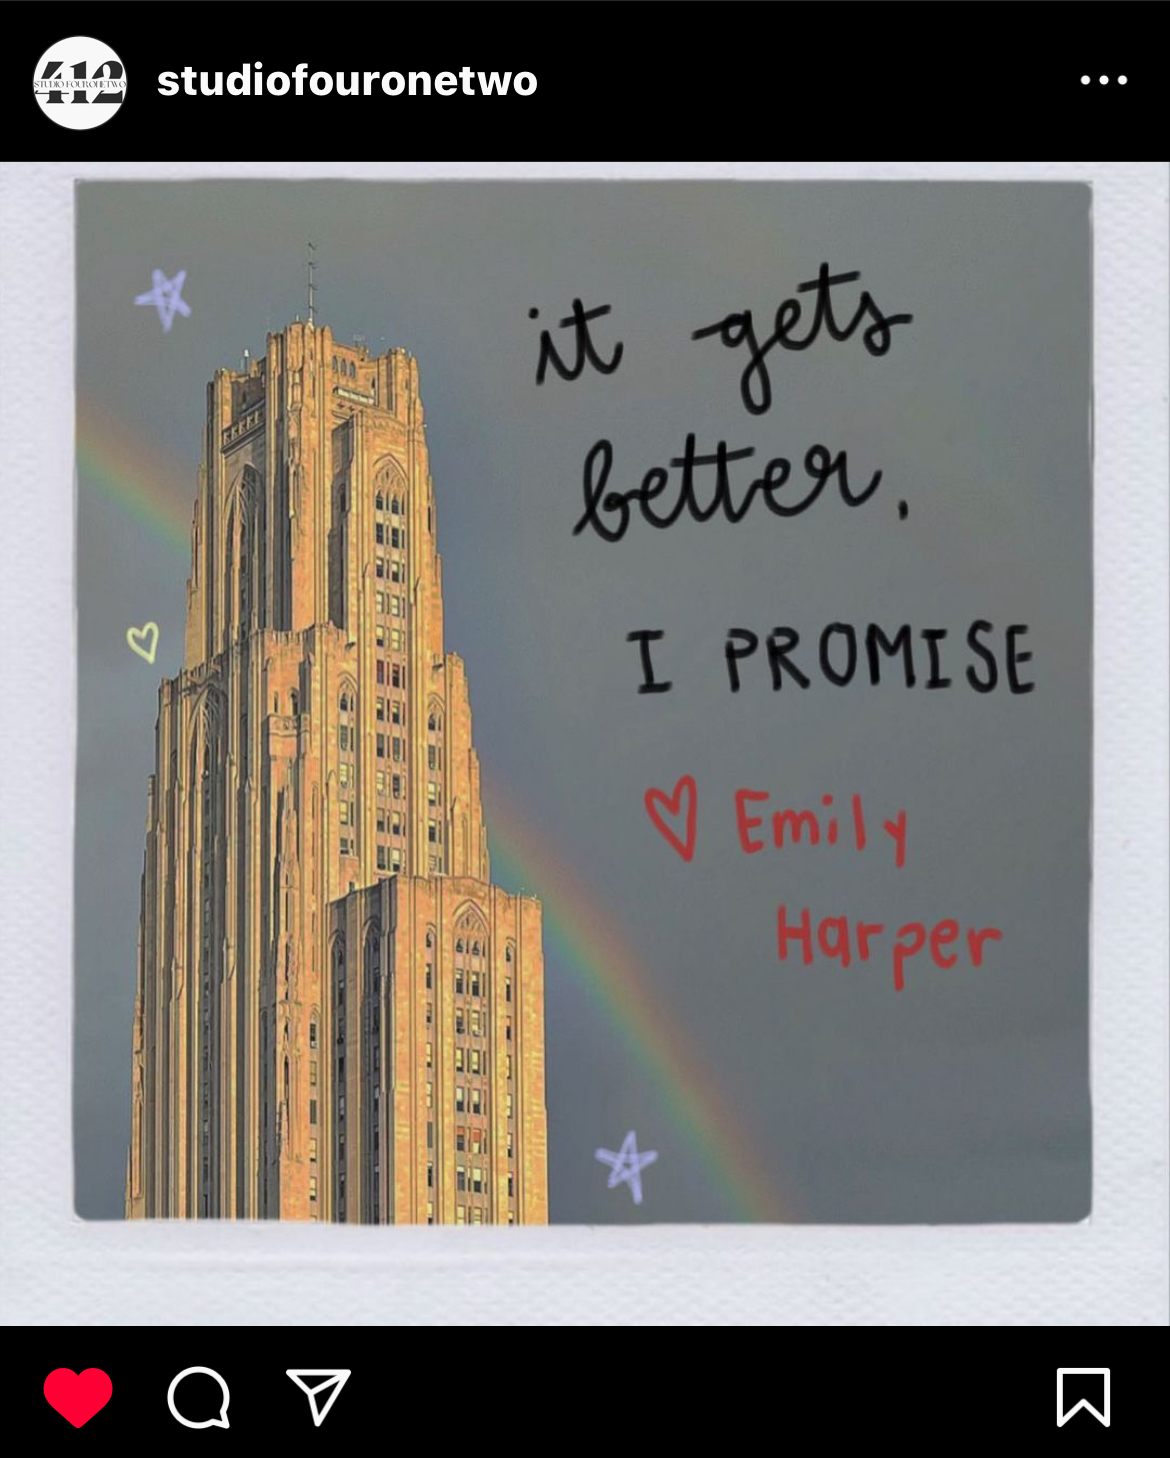 412
STUDIO FOURONETWO
studiofouronetwo
it gets
better.
I PROMISE
Emily
Harper